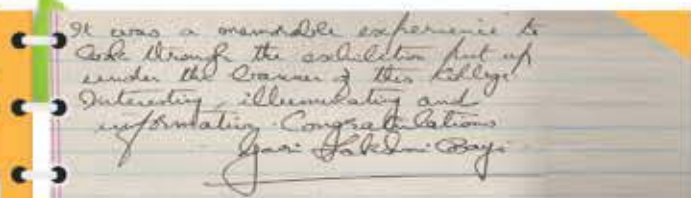 It was a memorable experience to
look through the exhibition put up
under the banner of this College
Interesting, illuminating and
informative. Congratulations
Gouri Lakshmi Bayi